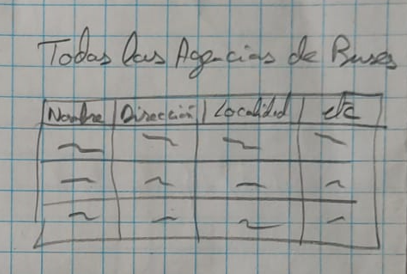 Todas las Agencias de Buses
Nombre Dirección Localidad etc